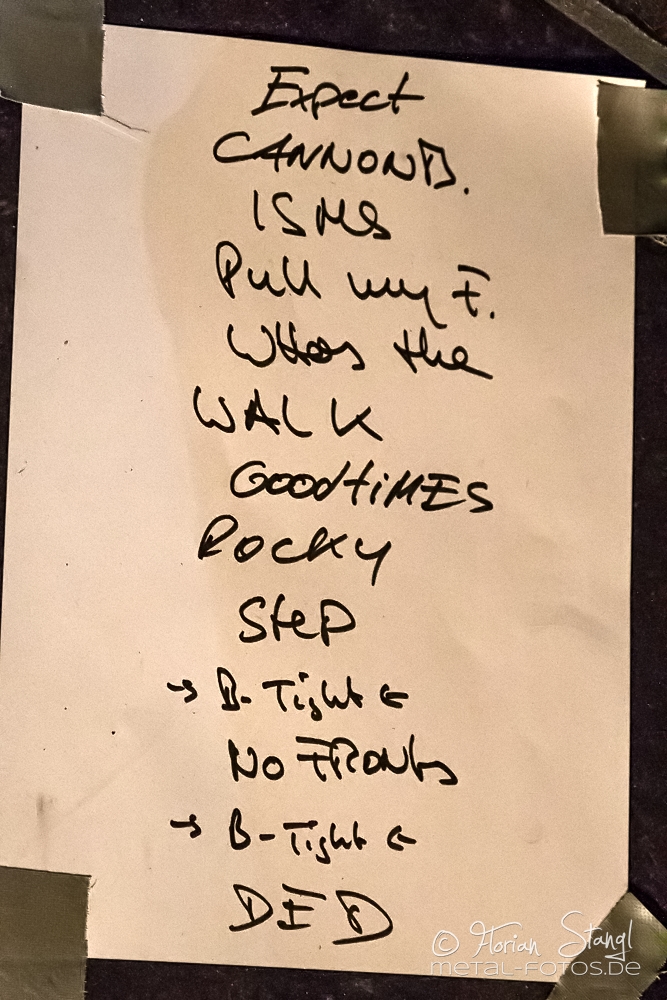 Expect
CANNONB.
ISMS
Pull my F.
WHos the
WALK
GOODtiMES
ROCKY
SteP
→ B-Tight ←
NO FRONts
→ B-Tight ←
DFD
© Florian Stangl
METAL-FOTOS.DE